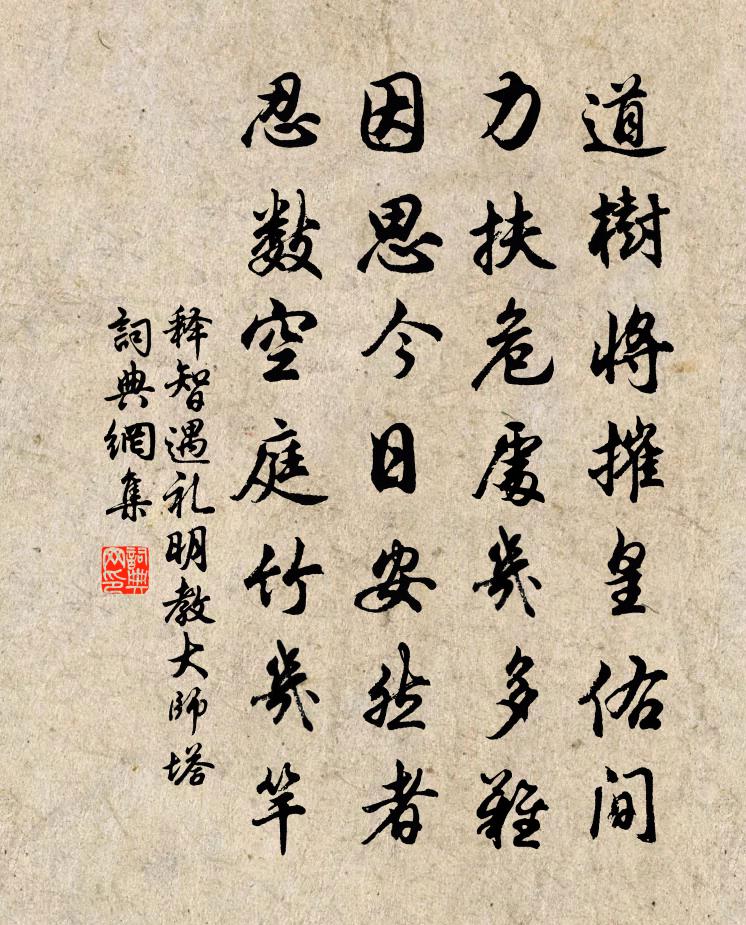 道樹將摧皇佑間
力扶危處幾多難
因思今日安然者
忍數空庭竹幾竿
释智遇礼明教大師塔
詞典網集
詞典網印